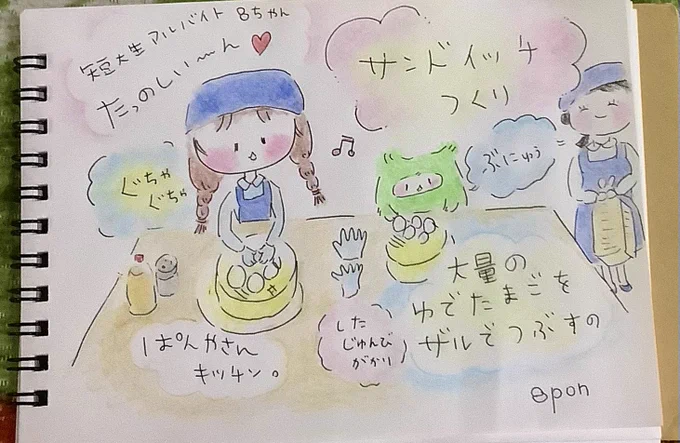 短大生アルバイト 8ちゃん
たっのしい〜〜ん♥
サンドイッチ
つくり
ぐちゃ
ぐちゃ
ぶにゅう
大量の
ゆでたまごを
ザルでつぶすの
した
じゅんび
がかり
ぱんやさん
キッチン。
8pon